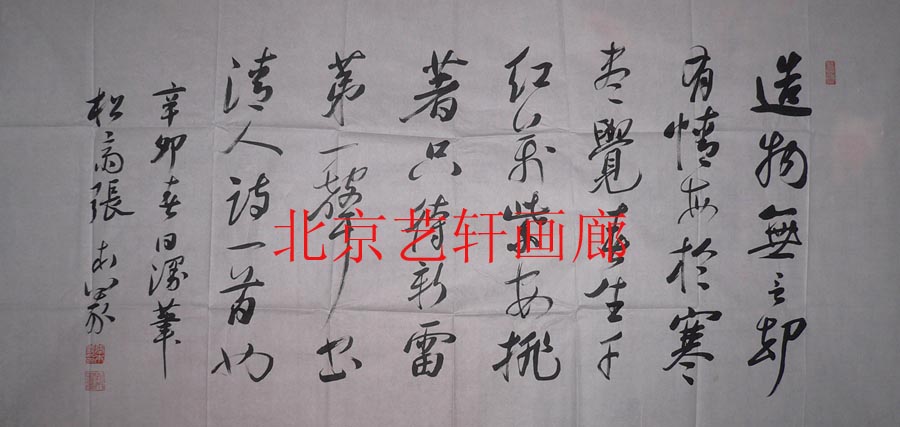 造物無言却
有情每於寒
盡覺春生千
红万紫安排
著只待新雷
第一聲 书
清人詩一首
辛卯春日筆
松張
北京艺轩画廊